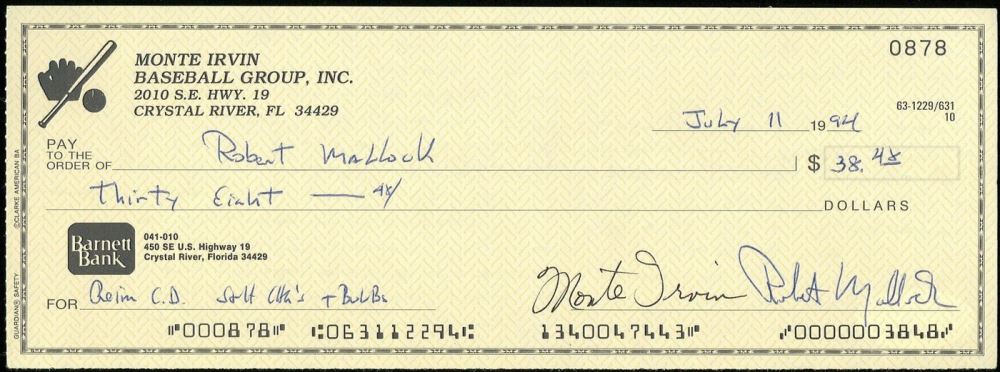 0878
MONTE IRVIN
BASEBALL GROUP, INC.
2010 S.E. HWY. 19
CRYSTAL RIVER, FL 34429
63-1229/631
10
July 11 1994
PAY
TO THE
ORDER OF Robert Mallock $ 38.48
Thirty Eight 48/ DOLLARS
Barnett
Bank
041-010
450 SE U.S. Highway 19
Crystal River, Florida 34429
FOR Reim C.D. + Bulbs
Monte Irvin Robert Mallock
⑈000878⑈ ⑆063112294⑆ 1340047443⑈ ⑇0000003848⑇
GUARDIAN® SAFETY
©CLARKE AMERICAN BA